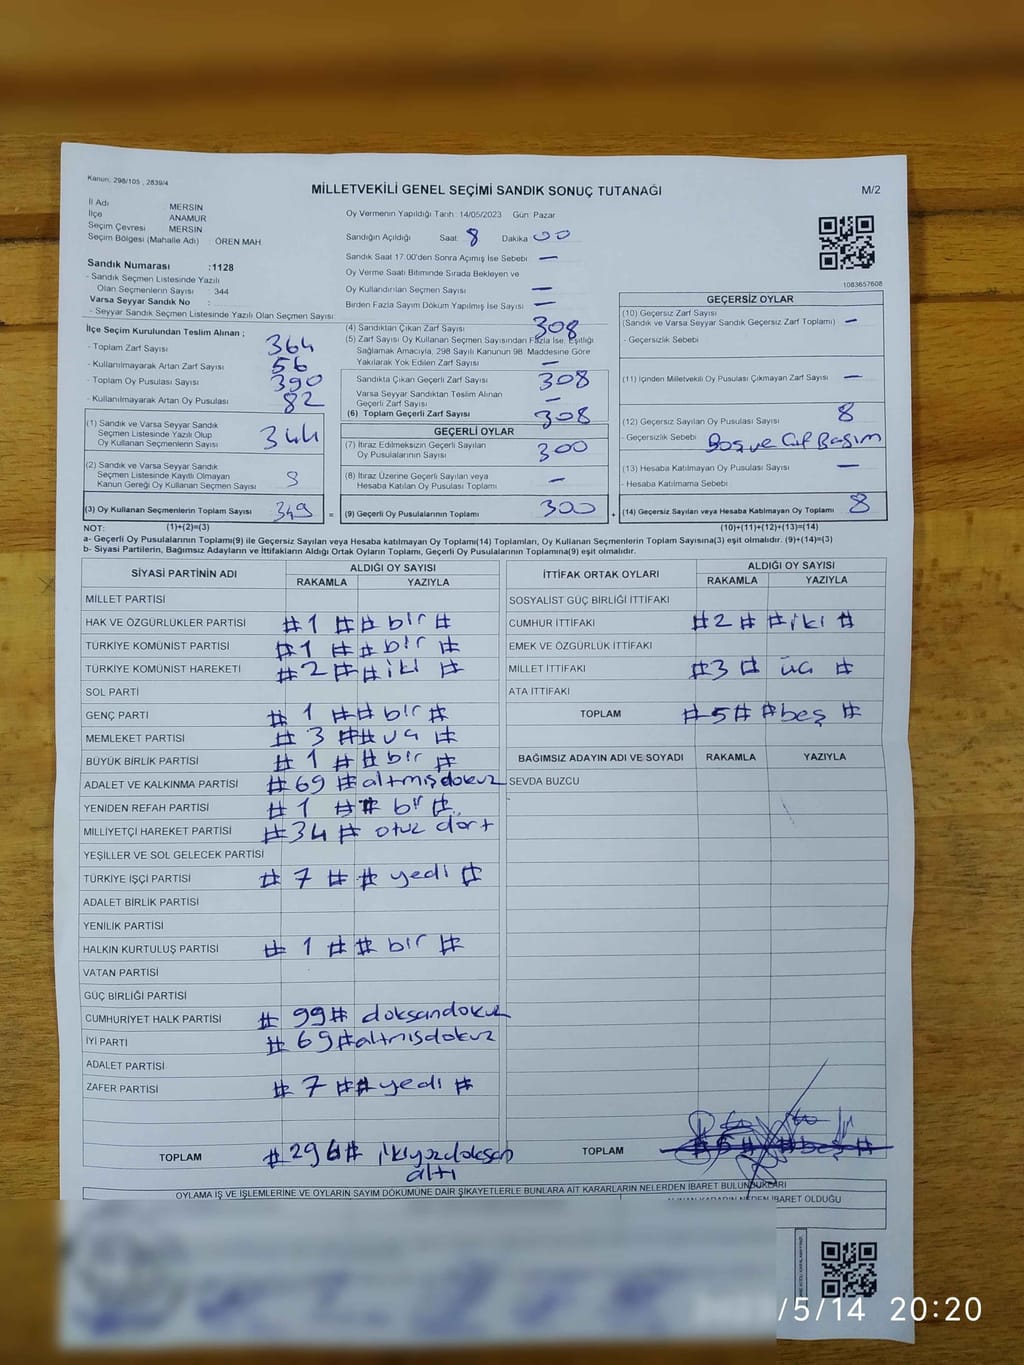 Kanun; 298/105 , 2839/4
MİLLETVEKİLİ GENEL SEÇİMİ SANDIK SONUÇ TUTANAĞI
M/2
İl Adı MERSİN
İlçe ANAMUR
Seçim Çevresi MERSİN
Seçim Bölgesi (Mahalle Adı) ÖREN MAH.
Sandık Numarası :1128
- Sandık Seçmen Listesinde Yazılı
Olan Seçmenlerin Sayısı : 344
Varsa Seyyar Sandık No :
- Seyyar Sandık Seçmen Listesinde Yazılı Olan Seçmen Sayısı
İlçe Seçim Kurulundan Teslim Alınan ;
- Toplam Zarf Sayısı 364
- Kullanılmayarak Artan Zarf Sayısı 56
- Toplam Oy Pusulası Sayısı 390
- Kullanılmayarak Artan Oy Pusulası 82
(1) Sandık ve Varsa Seyyar Sandık
Seçmen Listesinde Yazılı Olup
Oy Kullanan Seçmenlerin Sayısı 344
(2) Sandık ve Varsa Seyyar Sandık
Seçmen Listesinde Kayıtlı Olmayan
Kanun Gereği Oy Kullanan Seçmen Sayısı
(3) Oy Kullanan Seçmenlerin Toplam Sayısı 349 =
Oy Vermenin Yapıldığı Tarih : 14/05/2023 Gün: Pazar
Sandığın Açıldığı Saat: 8 Dakika 00
Sandık Saat 17:00'den Sonra Açımış İse Sebebi —
Oy Verme Saati Bitiminde Sırada Bekleyen ve
Oy Kullandırılan Seçmen Sayısı —
Birden Fazla Sayım Döküm Yapılmış İse Sayısı —
(4) Sandıktan Çıkan Zarf Sayısı 308
(5) Zarf Sayısı Oy Kullanan Seçmen Sayısından Fazla İse, Eşitliği
Sağlamak Amacıyla, 298 Sayılı Kanunun 98. Maddesine Göre
Yakılarak Yok Edilen Zarf Sayısı —
Sandıkta Çıkan Geçerli Zarf Sayısı 308
Varsa Seyyar Sandıktan Teslim Alınan
Geçerli Zarf Sayısı —
(6) Toplam Geçerli Zarf Sayısı 308
GEÇERLİ OYLAR
(7) İtiraz Edilmeksizin Geçerli Sayılan
Oy Pusulalarının Sayısı 300
(8) İtiraz Üzerine Geçerli Sayılan veya
Hesaba Katılan Oy Pusulası Toplamı —
(9) Geçerli Oy Pusulalarının Toplamı 300 +
1083657608
GEÇERSİZ OYLAR
(10) Geçersiz Zarf Sayısı
(Sandık ve Varsa Seyyar Sandık Geçersiz Zarf Toplamı) —
- Geçersizlik Sebebi
(11) İçinden Milletvekili Oy Pusulası Çıkmayan Zarf Sayısı —
(12) Geçersiz Sayılan Oy Pusulası Sayısı 8
- Geçersizlik Sebebi Boş ve Çift Basım
(13) Hesaba Katılmayan Oy Pusulası Sayısı —
- Hesaba Katılmama Sebebi
(14) Geçersiz Sayılan veya Hesaba Katılmayan Oy Toplamı 8
NOT: (1)+(2)=(3) (10)+(11)+(12)+(13)=(14)
a- Geçerli Oy Pusulalarının Toplamı(9) ile Geçersiz Sayılan veya Hesaba katılmayan Oy Toplamı(14) Toplamları, Oy Kullanan Seçmenlerin Toplam Sayısına(3) eşit olmalıdır. (9)+(14)=(3)
b- Siyasi Partilerin, Bağımsız Adayların ve İttifakların Aldığı Ortak Oyların Toplamı, Geçerli Oy Pusulalarının Toplamına(9) eşit olmalıdır.
SİYASİ PARTİNİN ADI ALDIĞI OY SAYISI
RAKAMLA YAZIYLA
MİLLET PARTİSİ
HAK VE ÖZGÜRLÜKLER PARTİSİ #1 # # bir #
TÜRKİYE KOMÜNİST PARTİSİ #1 # # bir #
TÜRKİYE KOMÜNİST HAREKETİ #2 # # iki #
SOL PARTİ
GENÇ PARTİ # 1 # # bir #
MEMLEKET PARTİSİ # 3 # # üç #
BÜYÜK BİRLİK PARTİSİ # 1 # # bir #
ADALET VE KALKINMA PARTİSİ # 69 # altmışdokuz
YENİDEN REFAH PARTİSİ # 1 # # bir #
MİLLİYETÇİ HAREKET PARTİSİ # 34 # otuz dört
YEŞİLLER VE SOL GELECEK PARTİSİ
TÜRKİYE İŞÇİ PARTİSİ # 7 # # yedi #
ADALET BİRLİK PARTİSİ
YENİLİK PARTİSİ
HALKIN KURTULUŞ PARTİSİ # 1 # # bir #
VATAN PARTİSİ
GÜÇ BİRLİĞİ PARTİSİ
CUMHURİYET HALK PARTİSİ # 99 # doksandokuz
İYİ PARTİ # 69 # altmışdokuz
ADALET PARTİSİ
ZAFER PARTİSİ # 7 # # yedi #
TOPLAM # 296 # ikiyüzdoksan
altı
İTTİFAK ORTAK OYLARI ALDIĞI OY SAYISI
RAKAMLA YAZIYLA
SOSYALİST GÜÇ BİRLİĞİ İTTİFAKI
CUMHUR İTTİFAKI #2 # # iki #
EMEK VE ÖZGÜRLÜK İTTİFAKI
MİLLET İTTİFAKI #3 # üç #
ATA İTTİFAKI
TOPLAM # 5 # # beş #
BAĞIMSIZ ADAYIN ADI VE SOYADI RAKAMLA YAZIYLA
SEVDA BUZCU
TOPLAM # 5 # # beş #
OYLAMA İŞ VE İŞLEMLERİNE VE OYLARIN SAYIM DÖKÜMÜNE DAİR ŞİKAYETLERLE BUNLARA AİT KARARLARIN NELERDEN İBARET BULUNDUKLARI
KARARIN NEDEN İBARET OLDUĞU
/5/14 20:20